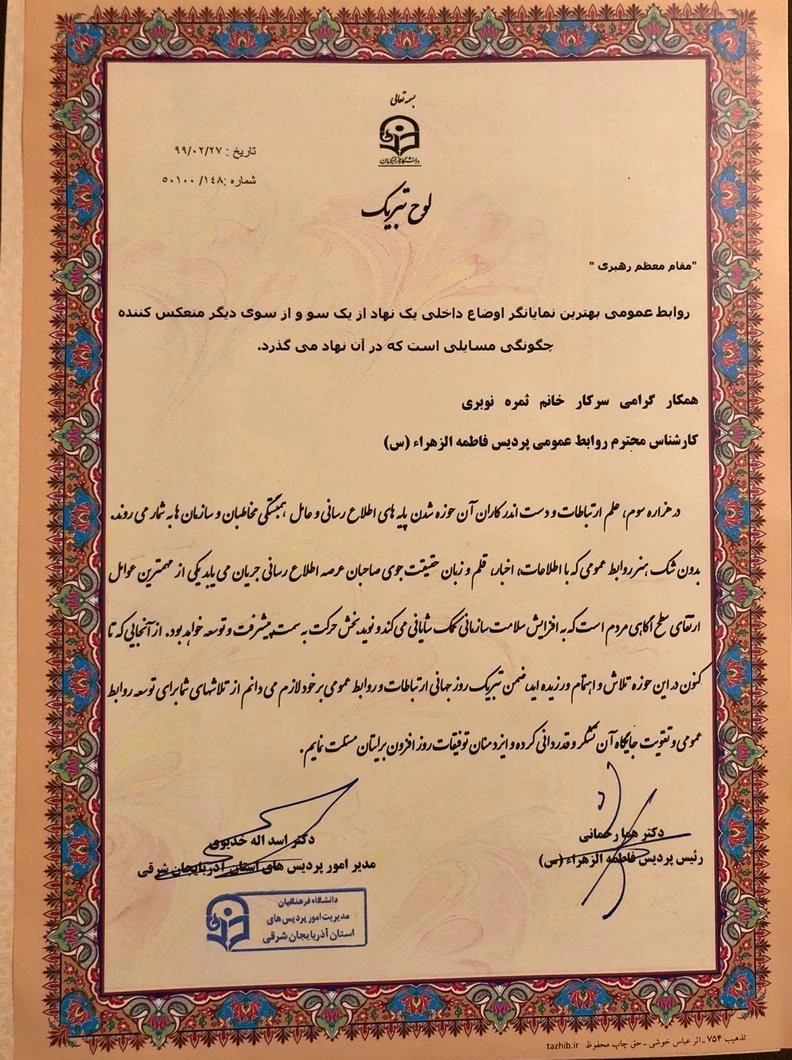 بسمه تعالی
دانشگاه فرهنگیان
تاریخ : ۹۹/۰۲/۲۷
شماره :۵۰۱۰۰ /۱۴۸
لوح تبریک
"مقام معظم رهبری "
روابط عمومی بهترین نمایانگر اوضاع داخلی یک نهاد از یک سو و از سوی دیگر منعکس کننده
چگونگی مسایلی است که در آن نهاد می گذرد.
همکار گرامی سرکار خانم ثمره نوبری
کارشناس محترم روابط عمومی پردیس فاطمه الزهراء (س)
در هزاره سوم، علم ارتباطات و دست اندرکاران آن حوزه شدن پایه های اطلاع رسانی و عامل همبستگی مخاطبان و سازمان ها به شمار می روند.
بدون شک هنر روابط عمومی که با اطلاعات، اخبار، قلم و زبان حقیقت جوی صاحبان عرصه اطلاع رسانی جریان می یابد یکی از مهمترین عوامل
ارتقای سطح آگاهی مردم است که به افزایش سلامت سازمانی کمک شایانی می کند و نوید بخش حرکت به سمت پیشرفت و توسعه خواهد بود. از آنجایی که تا
کنون در این حوزه تلاش و اهتمام ورزیده اید، ضمن تبریک روز جهانی ارتباطات و روابط عمومی بر خود لازم می دانم از تلاشهای شما برای توسعه روابط
عمومی و تقویت جایگاه آن تشکر و قدردانی کرده و ایزد منان توفیقات روز افزون برایتان مسئلت نمایم.
دکتر هما رحمانی
رئیس پردیس فاطمه الزهراء (س)
دکتر اسد اله خدیوی
مدیر امور پردیس های استان آذربایجان شرقی
دانشگاه فرهنگیان
مدیریت امور پردیس های
استان آذربایجان شرقی
تذهیب ۷۵۴ - اثر عباس خوشی - حق چاپ محفوظ tazhib.ir